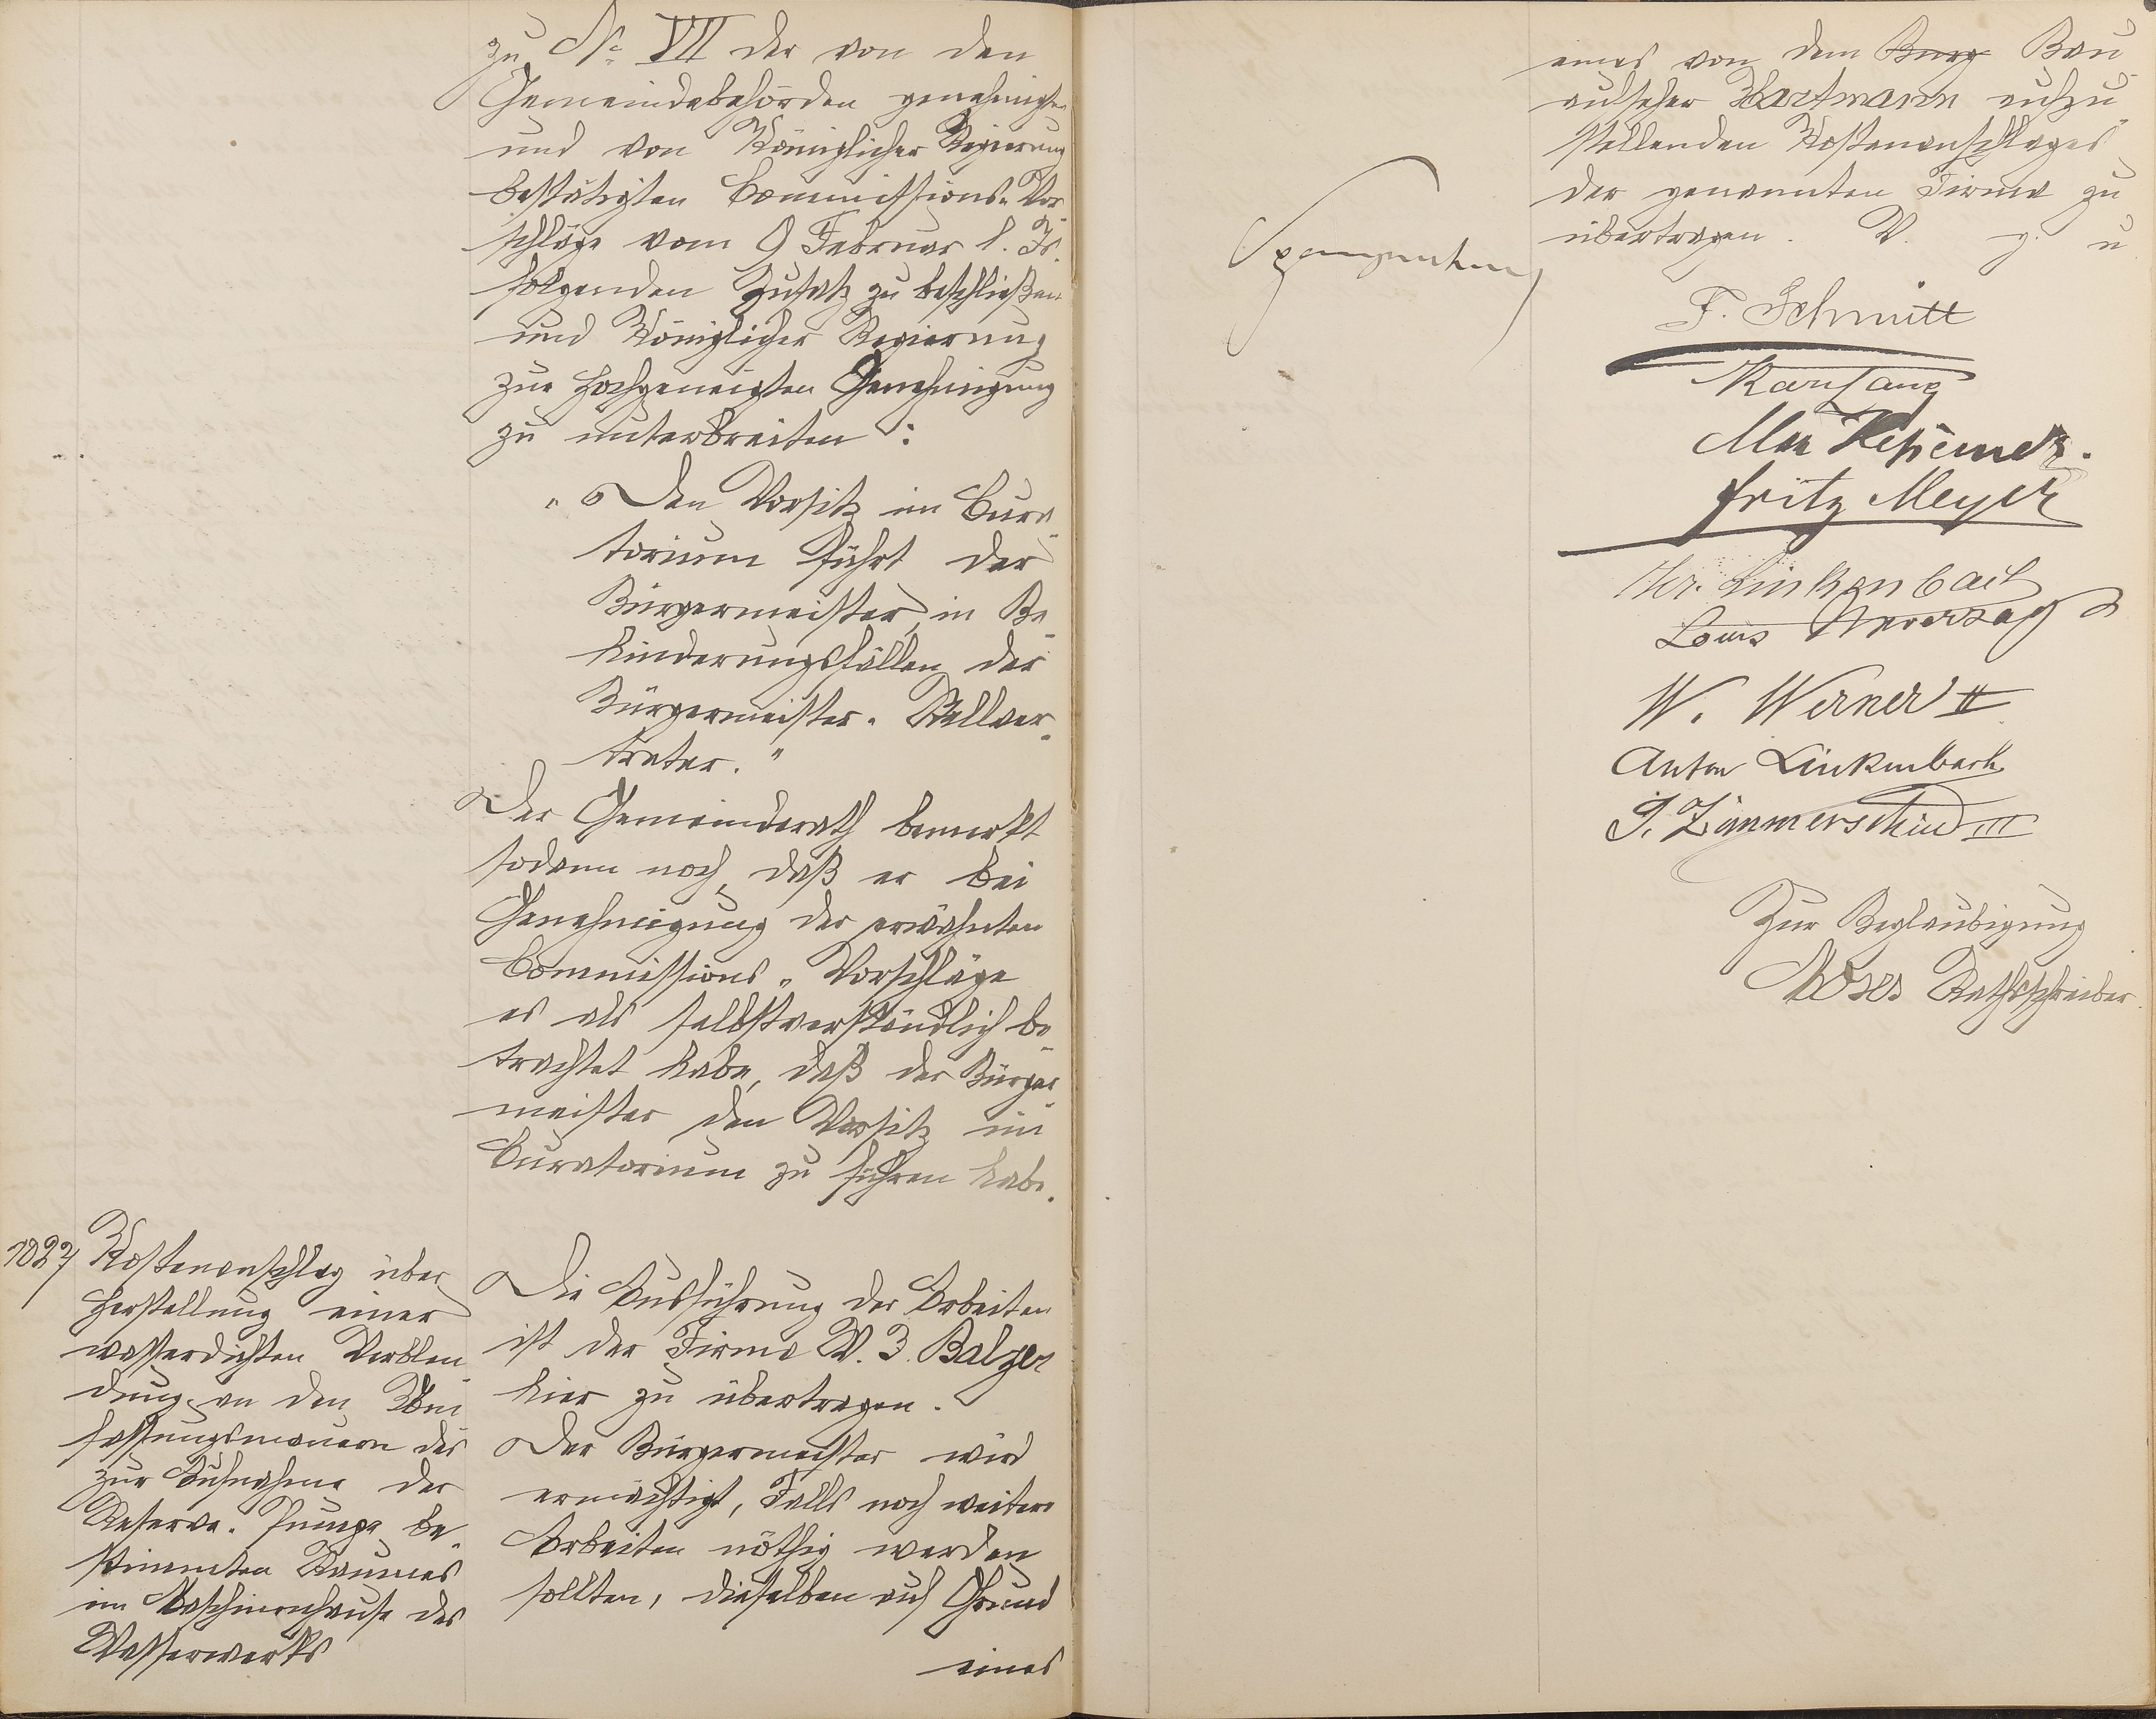 zu No VII der von den
Gemeindebehörden genehmigten
und von Königlicher Regierung
bestätigten Commissions-Vor-
schläge vom 9 Februar l. Js.
folgenden Zusatz zu beschließen
und Königlicher Regierung
zur hochgeneigten Genehmigung
zu unterbreiten:
"Den Vorsitz im Cura-
torium führt der
Bürgermeister, in Be-
hinderungsfällen der
Bürgermeister-Stellver-
treter."
Der Gemeinderath bemerkt
sodann noch, daß er bei
Genehmigung der erwähnten
Commissions-Vorschläge
es als selbstverständlich be-
trachtet habe, daß der Bürger-
meister den Vorsitz im
Curatorium zu führen habe.
1027
Kostenanschlag über
Herstellung einer
wasserdichten Verblen-
dung an den Um-
fassungsmauern des
zur Aufnahme der
Reserve-Pumpe be-
stimmten Raumes
im Maschinenhause des
Wasserwerks
Die Ausführung der Arbeiten
ist der Firma W. J. Balzer
hier zu übertragen.
Der Bürgermeister wird
ermächtigt, Falls noch weitere
Arbeiten nöthig werden
sollten, dieselben auf Grund
eines
eines von dem Burg Bau-
aufseher Hartmann aufzu-
stellenden Kostenanschlages
der genannten Firma zu
übertragen. V. g. u
F. Schmitt
Karl Lang
Fritz Meyer
Chr. Linkenbach
Louis
W. Werner II
Anton Linkenbach
J. Zimmerschied III
Zur Beglaubigung
Moses Rathschreiber